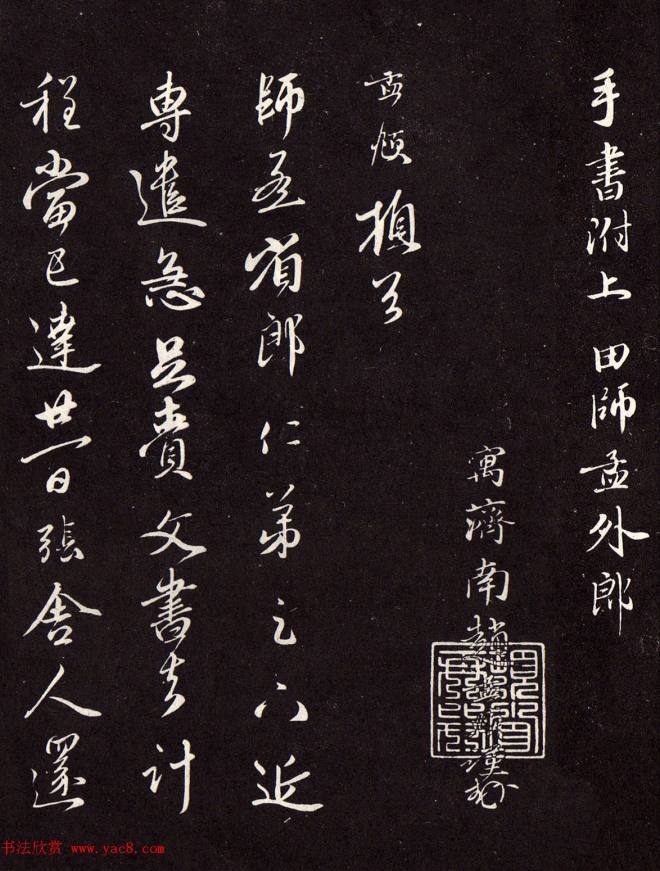 手書附上 田師孟外郎
寓濟南趙孟頫謹封
孟頫頓首
師孟省郎仁弟足下近
專遣急足賫文書去計
程當已達廿一日張舍人還
书法欣赏 www.yac8.com